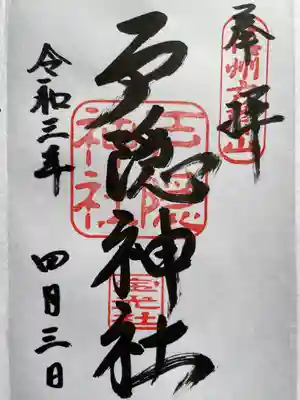 奉拝
信州戸隠山
戸隠神社
戸隠
神社
宝光社
令和三年 四月三日